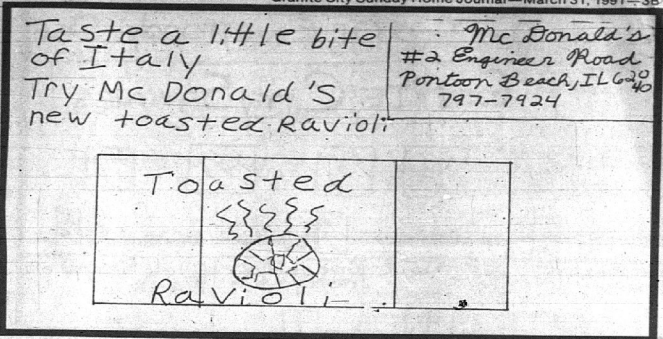 Granite City Sunday Home Journal—March 31, 1991—3B
Taste a little bite
of Italy
Try Mc Donald's
new toasted Ravioli
Mc Donald's
#2 Engineer Road
Pontoon Beach, IL 62040
797-7924
Toasted
Ravioli